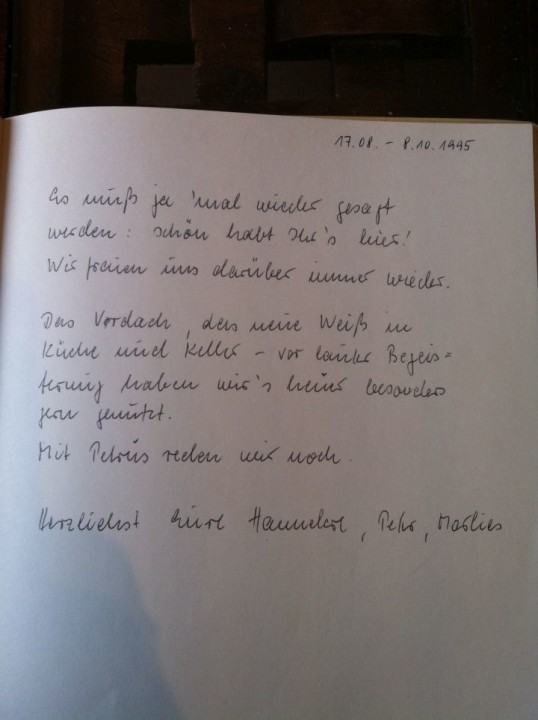 17.08. - 8.10.1995
Es muß ja 'mal wieder gesagt
werden: schön habt Ihr's hier!
Wir freuen uns darüber immer wieder.
Das Vordach, das neue Weiß in
Küche und Keller - vor lauter Begeis=
terung haben wir's heuer besonders
gern genutzt.
Mit Petrus reden wir noch.
Herzlichst Eure Hannekre, Peter, Marlies